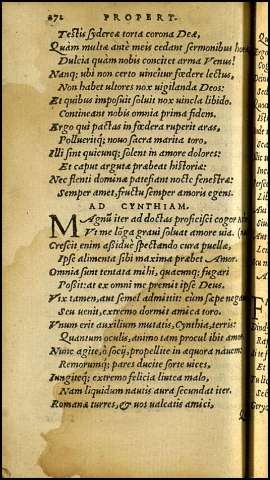 272 PROPERT.
Testis sydereæ torta corona Deæ,
Quàm multæ ante meis cedant sermonibus horæ
Dulcia quam nobis concitet arma Venus!
Nanq; ubi non certo uincitur fœdere lectus,
Non habet ultores nox uigilanda Deos:
Et quibus imposuit soluit nox uincla libido.
Contineant nobis omnia prima fidem.
Ergo qui pactas in fœdera ruperit aras,
Polluerítq; nouo sacra marita toro,
Illi sint quicunq; solent in amore dolores:
Et caput argutæ præbeat historiæ:
Nec flenti dominæ patefiant nocte fenestræ:
Semper amet, fructu semper amoris egens.
AD CYNTHIAM.
MAgnũ iter ad doctas proficisci cogor
Vt me lõga graui soluat amore uia.
Crescit enim assiduè spectando cura puellæ,
Ipse alimenta sibi maxima præbet Amor.
Omnia sunt tentata mihi, quacunq; fugari
Possit: at ex omni me premit ipse Deus.
Vix tamen, aut semel admittit: cum sæpe
Seu uenit, extremo dormit amica toro.
Vnum erit auxilium mutatis, Cynthia, terris:
Quantum oculis, animo tam procul ibit amor.
Nunc agite, ô socij, propellite in æquora nauem:
Remorumq; pares ducite sorte uices,
Iungiteq; extremo felicia lintea malo,
Nam liquidum nautis aura secundat iter.
Romanæ turres, & uos ualeatis amici,